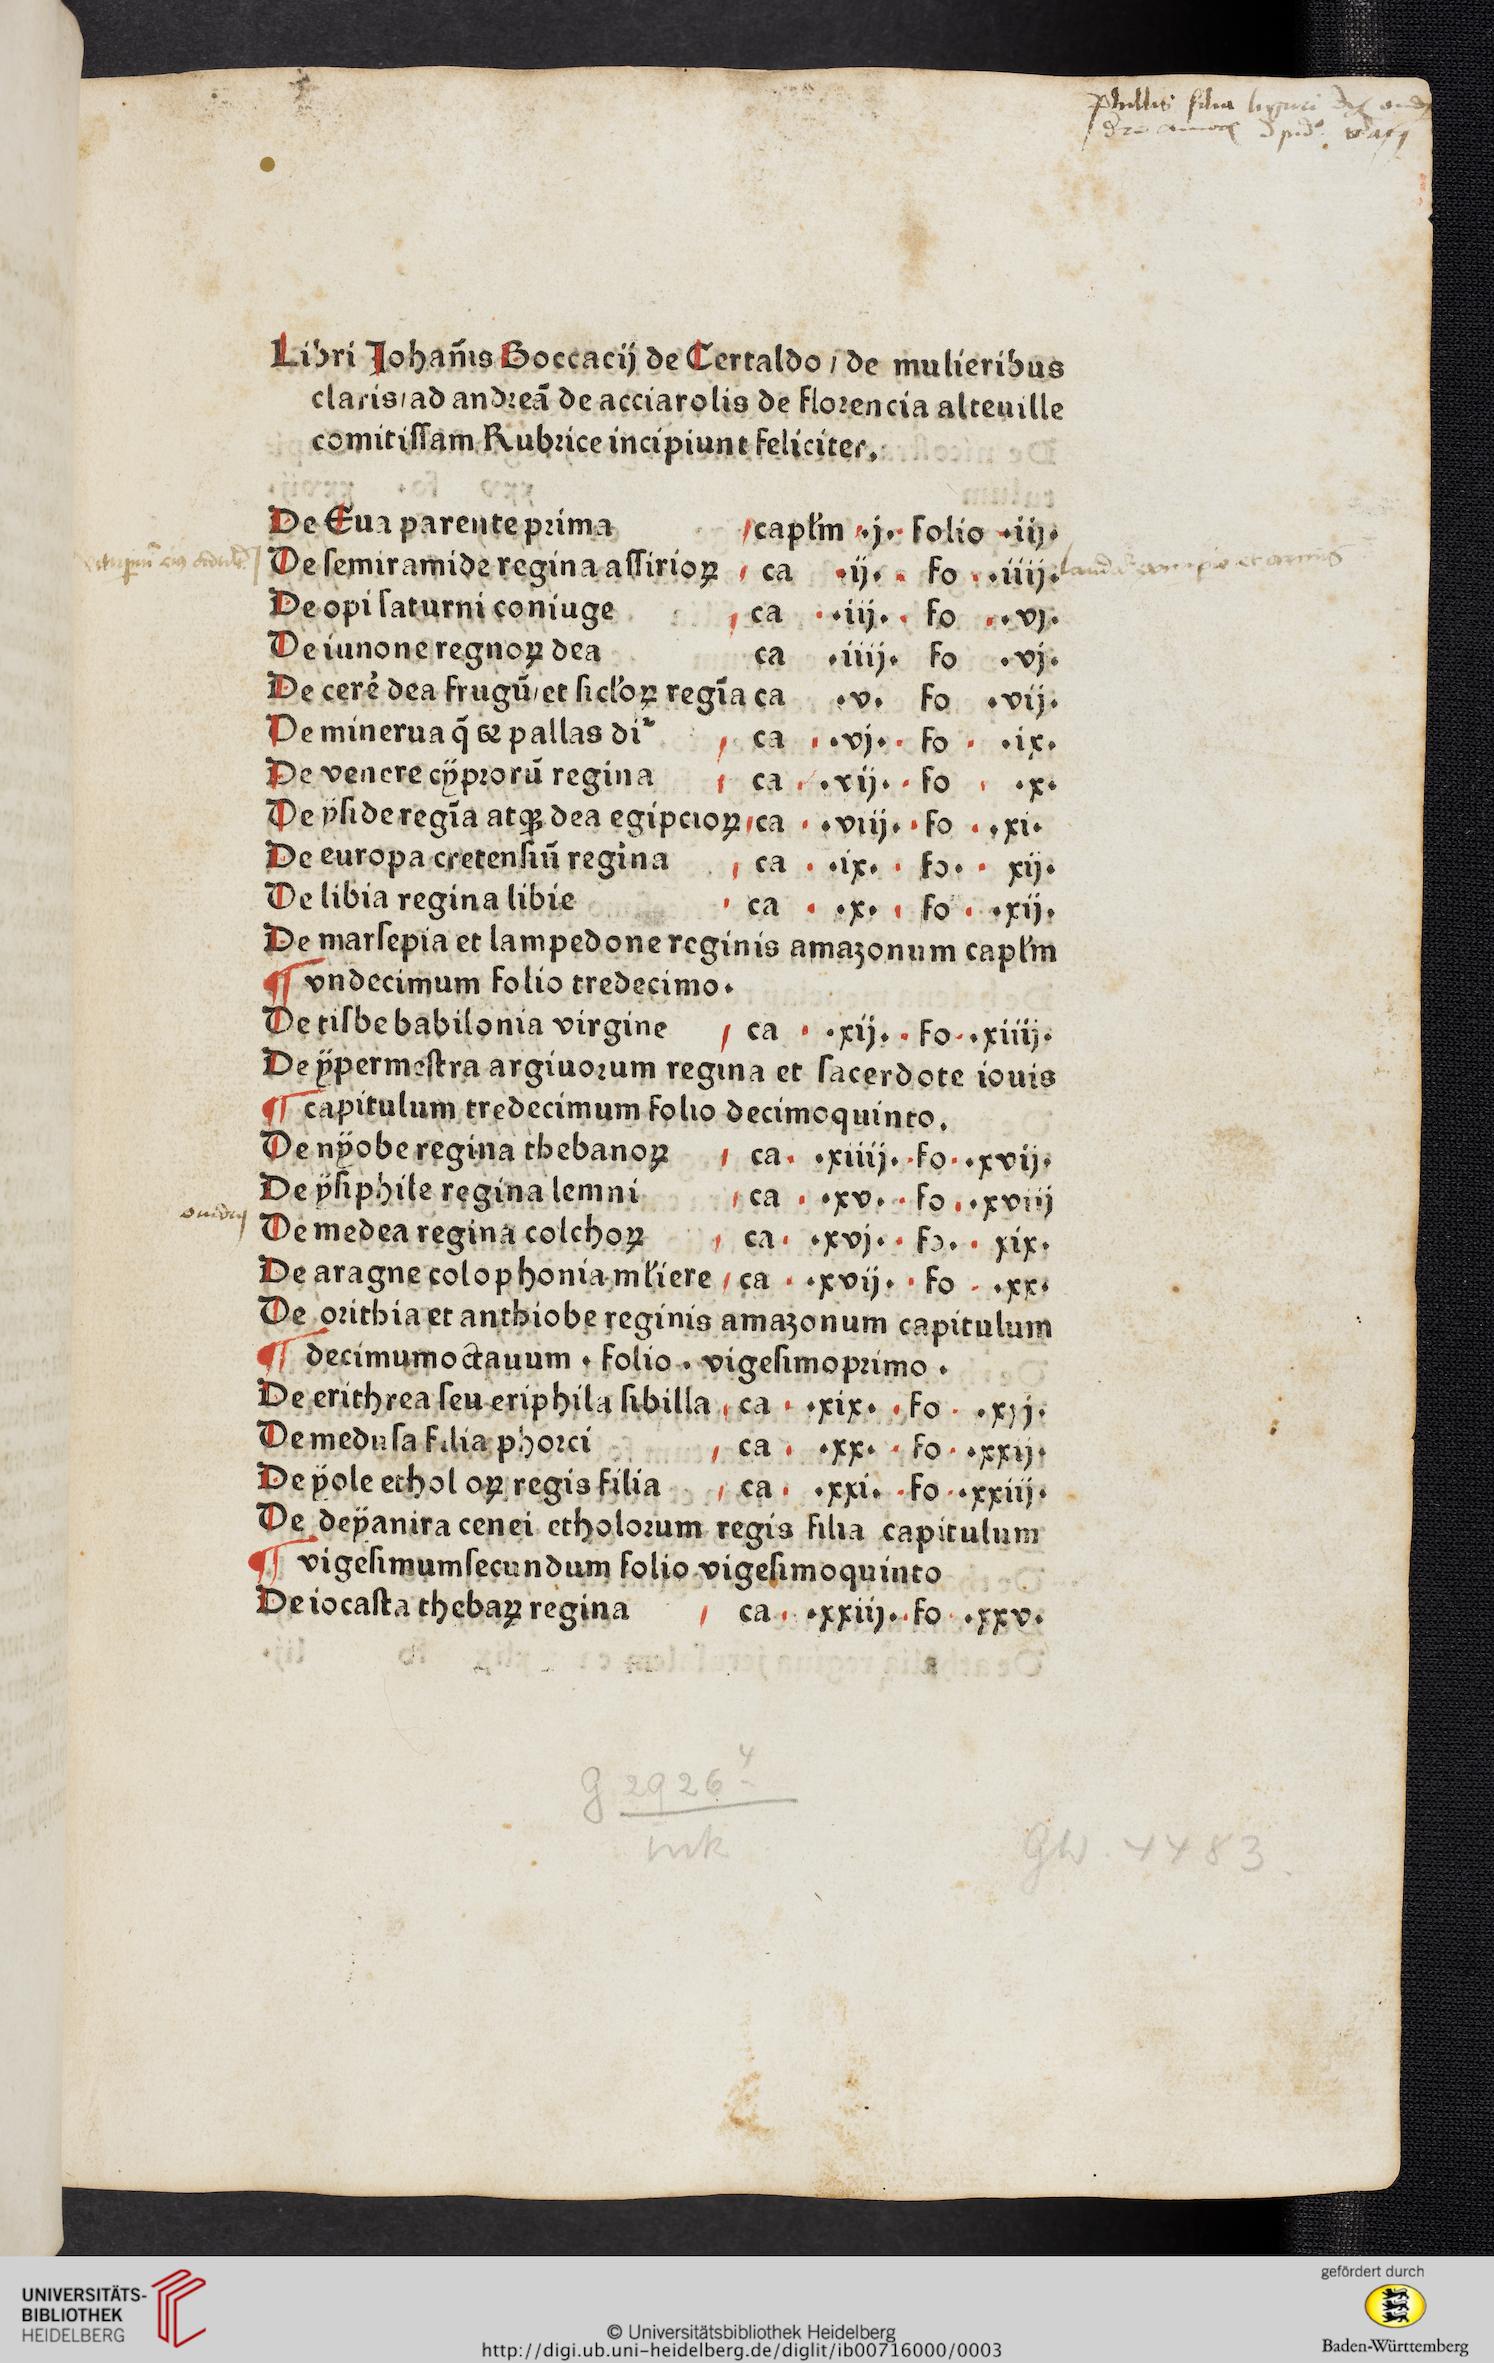 Phillis filia
Libri Johan̄is Boccacij de Certaldo / de mulieribus
claris/ad andreā de acciarolis de florencia alteuille
comitissam Rubrice incipiunt feliciter.
De Eua parente prima capľm •j• folio •iij•
De semiramide regina assirioꝝ ca •ij• fo •iiij•
De opi saturni coniuge ca •iij• fo •vj•
De iunone regnoꝝ dea ca •iiij• fo •vj•
De cere᷒ dea frugū/et sicľoꝝ regīa ca •v• fo •vij•
De minerua q̄ ⁊ pallas di ca •vj• fo •ix•
De venere cÿprorū regina ca •vij• fo •x•
De ÿside regīa atqꝫ dea egipcioꝝ ca •viij• fo •xi•
De europa cretensiū regina ca •ix• fo• xij•
De libia regina libie ca •x• fo •xij•
De marsepia et lampedone reginis amazonum capľm
¶ vndecimum folio tredecimo•
De tisbe babilonia virgine ca •xij• fo •xiiij•
De ÿpermestra argiuorum regina et sacerdote iouis
¶ capitulum tredecimum folio decimoquinto.
De nÿobe regina thebanoꝝ ca •xiiij• fo •xvij•
De ÿsiphile regina lemni ca •xv• fo •xviij
ouidij
De medea regina colchoꝝ ca •xvj• fo• xix•
De aragne colophonia mľiere ca •xvij• fo •xx•
De orithia et anthiobe reginis amazonum capitulum
¶ decimumoctauum • folio • vigesimoprimo •
De erithrea seu eriphila sibilla ca •xix• fo •xxj•
De medusa filia phorci ca •xx• fo •xxij•
De ÿole ethol oꝝ regis filia ca •xxi• fo •xxiij•
De deÿanira cenei etholorum regis filia capitulum
¶ vigesimumsecundum folio vigesimoquinto
De iocasta thebaꝝ regina ca •xxiij• fo •xxv•
G 2926 4
Ink
GW. 4483.
UNIVERSITÄTS-
BIBLIOTHEK
HEIDELBERG
© Universitätsbibliothek Heidelberg
http://digi.ub.uni-heidelberg.de/diglit/ib00716000/0003
gefördert durch
Baden-Württemberg